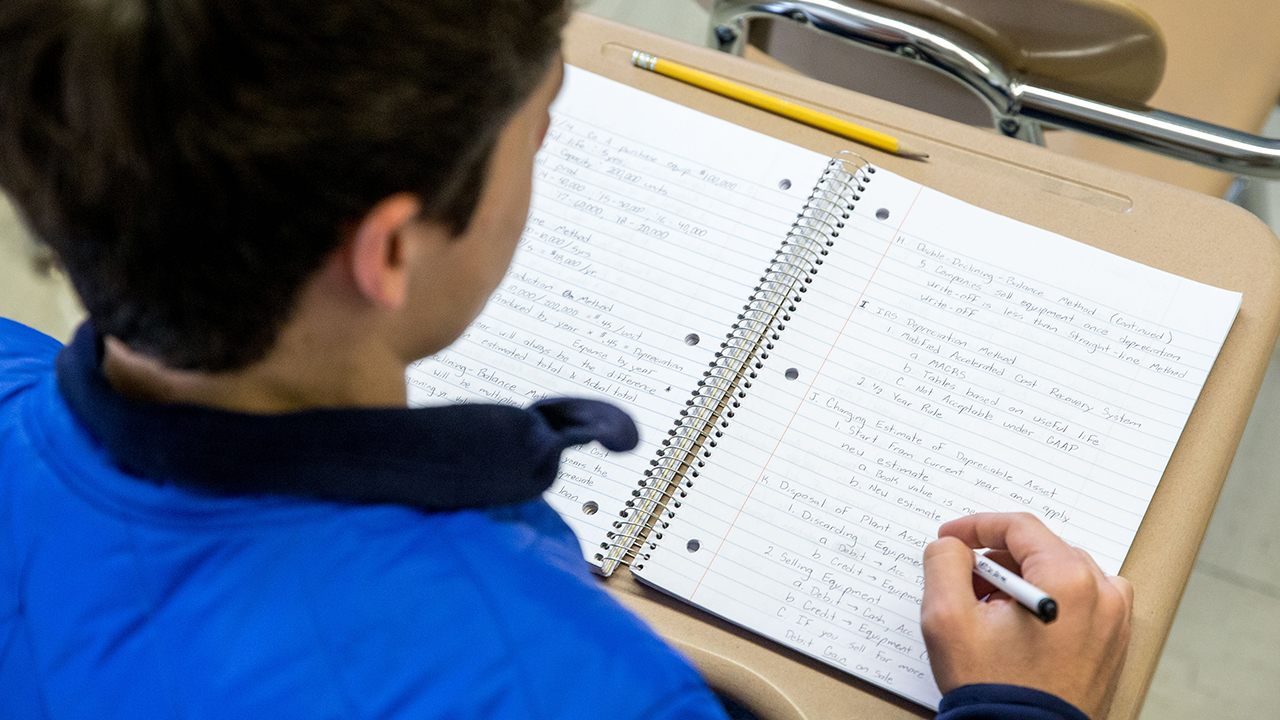 Co. A purchase equip. $100,000
life - 5 yrs.
Capacity 200,000 units
40,000, 15-50,000, 16-40,000
17-60,000, 18-20,000
Line Method
10,000/5yrs
= $18,000/yr
Production Method
10,000/200,000 = $.45/cost
Produced by year * $.45 = Depreciation
Expense by year
year will always be the difference *
estimated total & Actual total
Declining-Balance Metho
will be multiplie
Cost
years the
H. Double-Declining-Balance Method (Continued)
5. Companies sell equipment once depreciation
write-off is less than straight-line Method
write-off
I IRS Depreciation Method
1. Modified Accelerated Cost Recovery System
a MACRS
b. Tables based on useful life
C. Not Acceptable under GAAP
2 ½ Year Rule
J. Changing Estimate of Depreciable Asset
1. Start From current year and apply
new estimate
a Book value is ne
b. New estimate
K. Disposal of Plant Asset
1. Discarding Equipme
a Debit → Acc. D
b Credit → Equipme
2. Selling Equipment
a Debit → Cash, Acc.
b Credit → Equipment (
C. If you sell For more
Debit Gain on sale